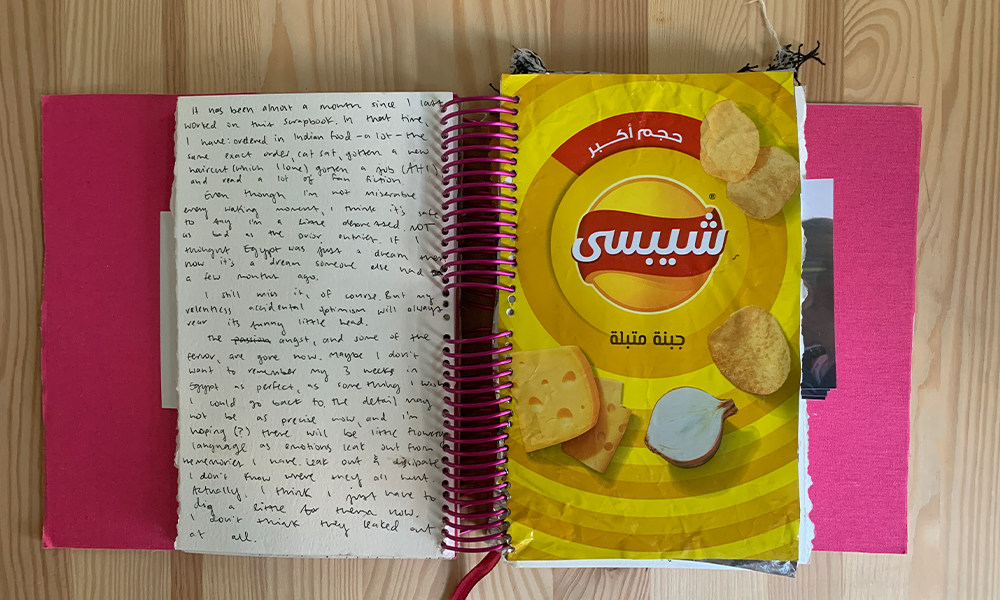 It has been almost a month since I last
worked on this scrapbook. In that time,
I have: ordered in Indian food - a lot - the
same exact order, cat sat, gotten a new
haircut (which I love) gotten a job (AH!)
and read a lot of fan fiction.
Even though I'm not miserable
every waking moment, I think it's safe
to say I'm a little depressed. NOT
as bad as the prior entries. If I
thought Egypt was just a dream then
now it's a dream someone else had
a few months ago.
I still miss it, of course. But my
relentless accidental optimism will always
rear its funny little head.
The passion angst, and some of the
fervor, are gone now. Maybe I don't
want to remember my 3 weeks in
Egypt as perfect, as something I wish
I could go back to. the detail may
not be as precise now, and I'm
hoping (?) there will be little flowery
language as emotions leak out from
memories I have. Leak out & dissipate
I don't know where they all went
actually. I think I just have to
dig a little for them now.
I don't think they leaked out
at all.
حجم أكبر
شيبسى
®
جبنة متبلة